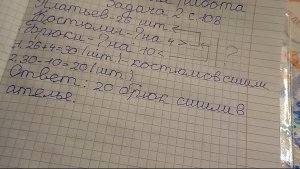 работа
Задача 2 с 108
Платьев - 26 шт.
Костюмы - ? на 4 >
Брюки - ? на 10 < ?
1. 26+4=30 (шт.) - костюмов сшили
2. 30-10=20 (шт.)
Ответ: 20 брюк сшили в
ателье.